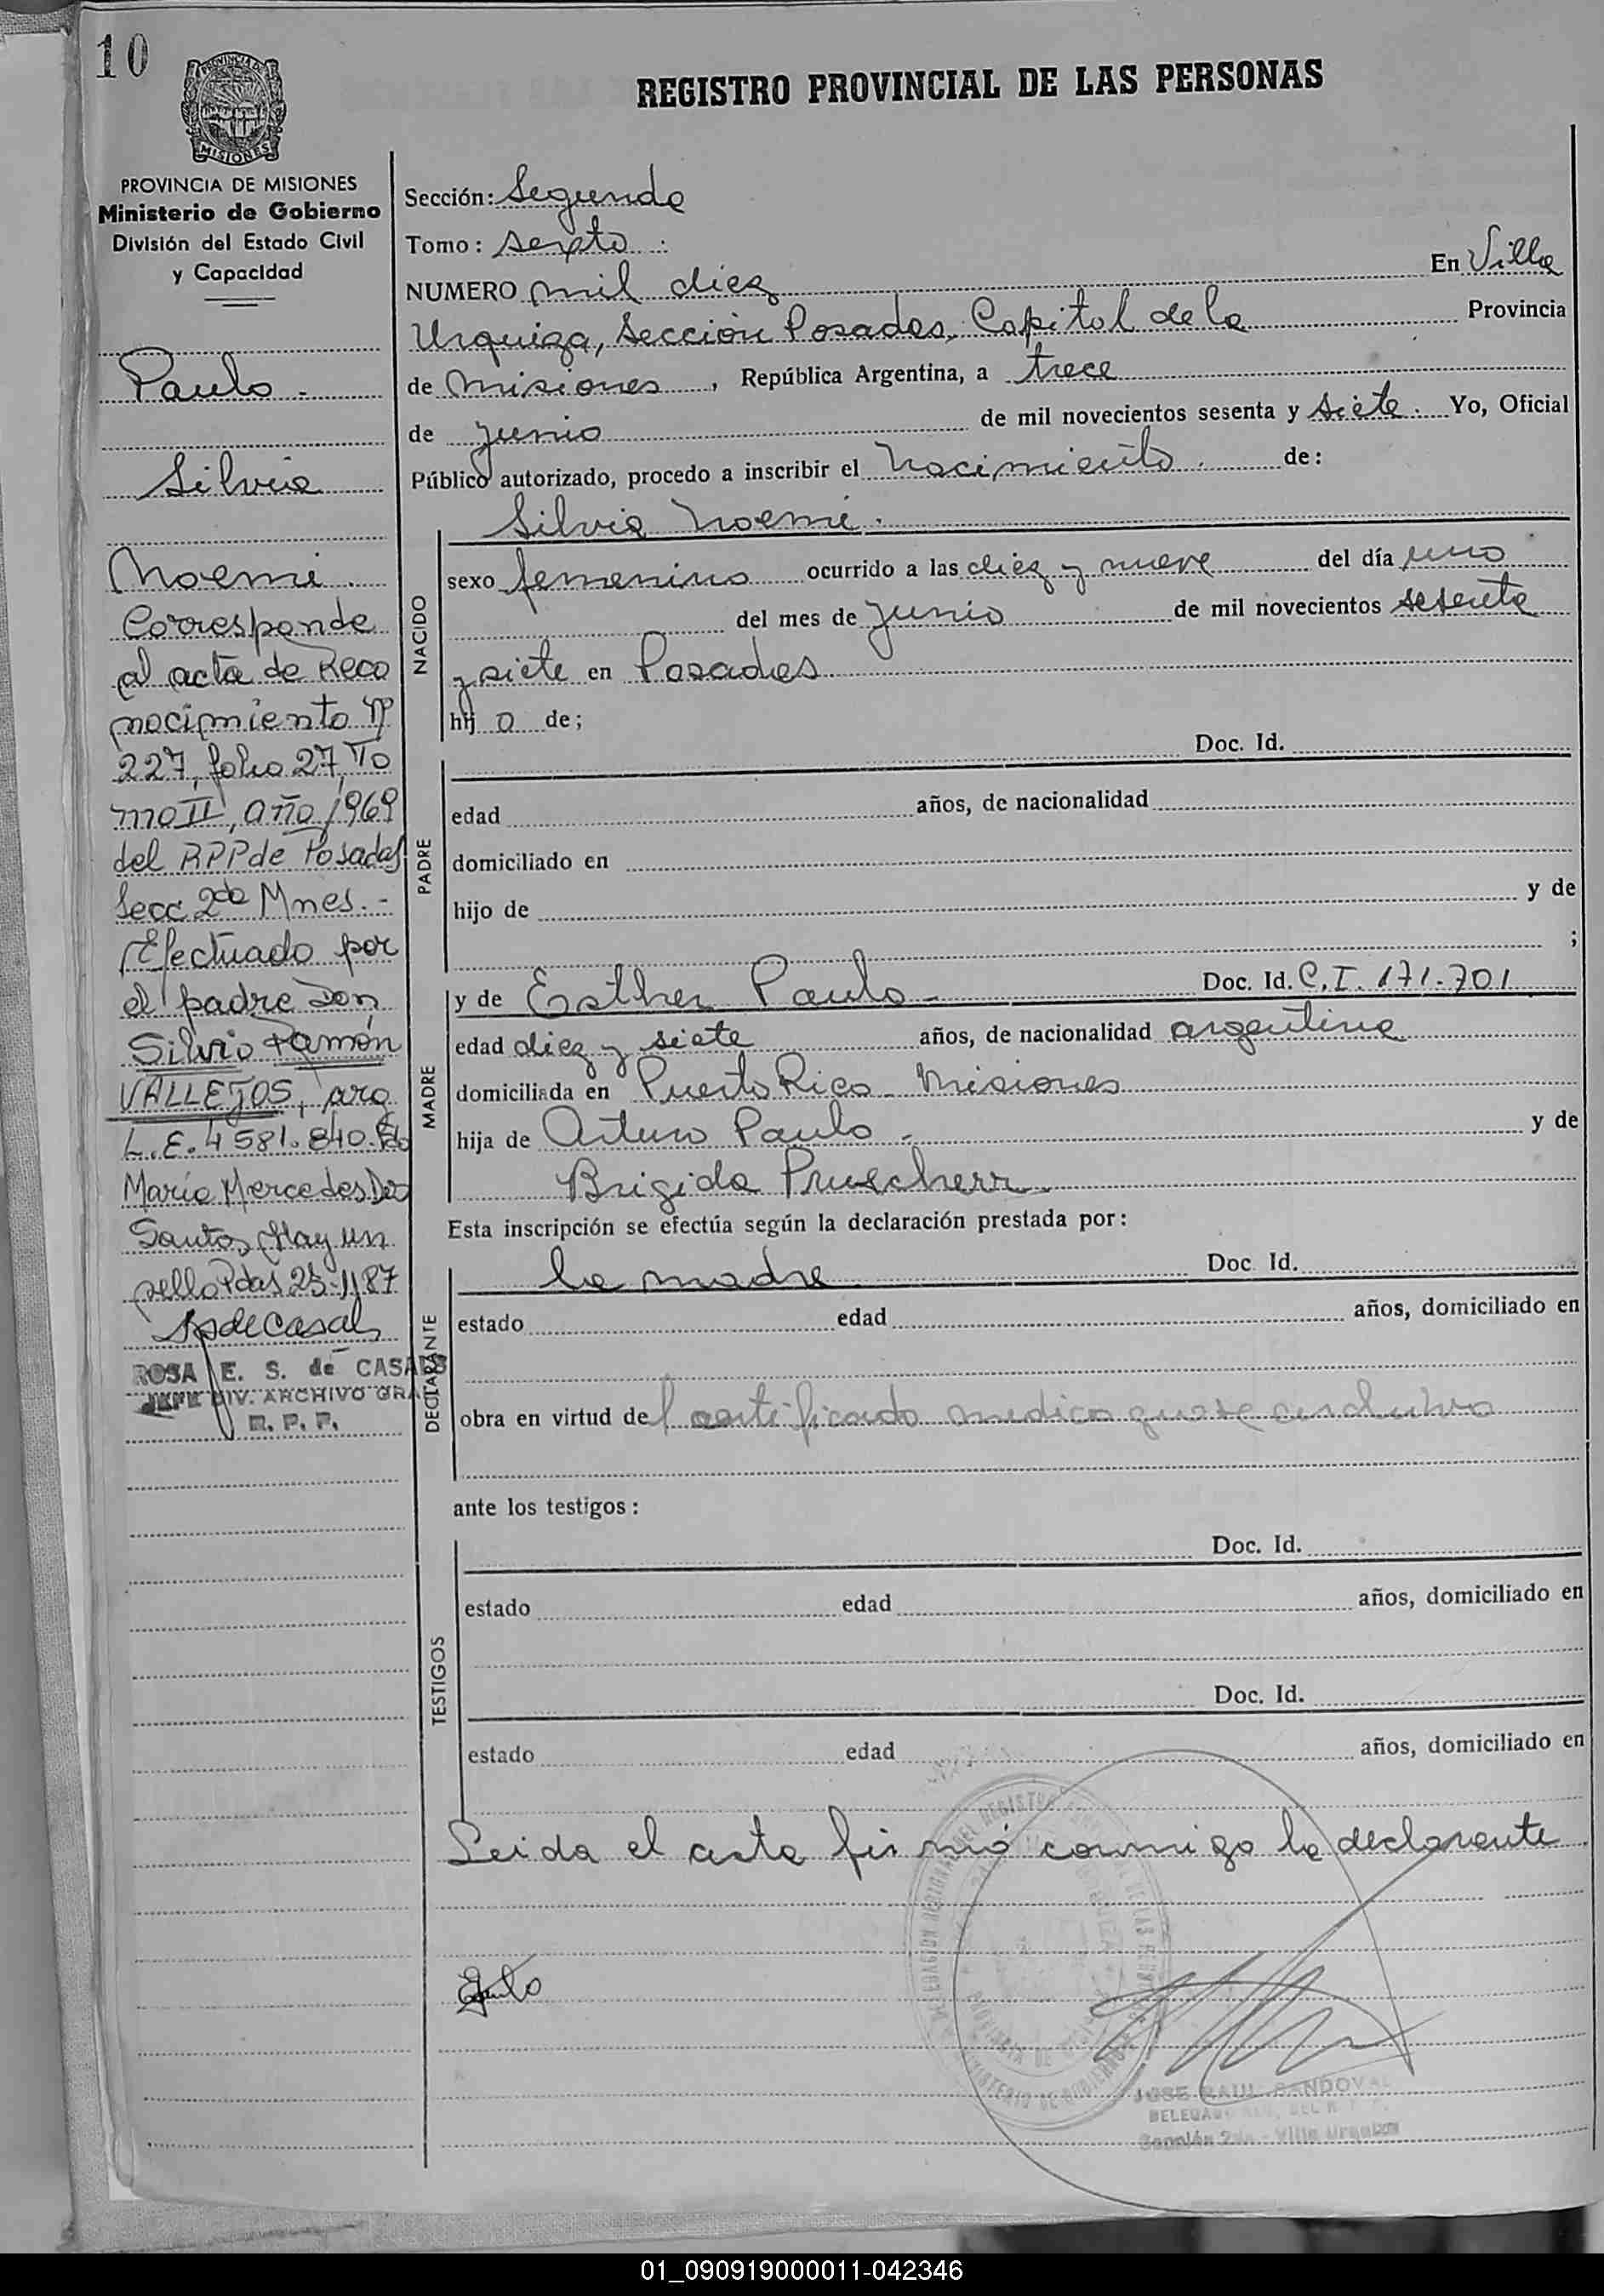 10
REGISTRO PROVINCIAL DE LAS PERSONAS
PROVINCIA DE MISIONES
MISIONES
PROVINCIA DE MISIONES
Ministerio de Gobierno
División del Estado Civil
y Capacidad
Paulo -
Silvia
Noemi .
Corresponde
al acta de Reco
nocimiento Nº
227, folio 27, To
mo II, año 1969
del RPP de Posadas
Secc 2da Mnes. -
Efectuado por
el padre Don
Silvio Ramón
VALLEJOS, arg
L.E. 4 581.840.
María Mercedes Dos
Santos, Hay un
sello Pdas 25-1187
ROSA E. S. de CASALS
JEFE DIV. ARCHIVO GRAL
R. P. P.
Sección: Segunda
Tomo: Sexto :
NUMERO mil diez En Villa
Urquiza, Sección Posadas, Capital de la Provincia
de Misiones, República Argentina, a trece
de junio de mil novecientos sesenta y siete. Yo, Oficial
Público autorizado, procedo a inscribir el Nacimiento . de:
Silvia Noemi .
NACIDO
sexo femenino ocurrido a las diez y nueve del día uno
del mes de junio de mil novecientos sesenta
y siete en Posadas
hij a de;
PADRE
Doc. Id.
edad años, de nacionalidad
domiciliado en
hijo de y de
;
MADRE
y de Esther Paulo - Doc. Id. C.I. 171.701
edad diez y siete años, de nacionalidad argentina
domiciliada en Puerto Rico - Misiones
hija de Arturo Paulo - y de
Brigida
Esta inscripción se efectúa según la declaración prestada por:
DECLARANTE
la madre Doc. Id.
estado edad años, domiciliado en
obra en virtud del certificado medico que se
ante los testigos:
TESTIGOS
Doc. Id.
estado edad años, domiciliado en
Doc. Id.
estado edad años, domiciliado en
Leida el acta firmó conmigo la declarante .
JOSE RAUL SANDOVAL
Sección 2da - Villa Urquiza
01_090919000011-042346